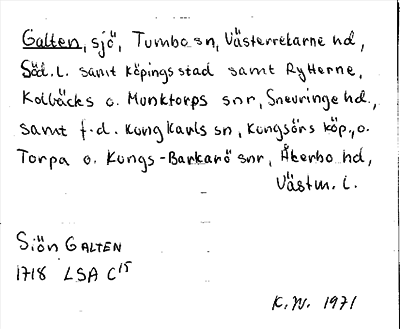 Galten, sjö, Tumbo sn, Västerrekarne hd,
Söd. l. samt Köpings stad samt Rytterne,
Kolbäcks o. Munktorps snr, Snevringe hd.,
samt f.d. Kung Karls sn, Kungsörs köp., o.
Torpa o. Kungs-Barkarö snr, Åkerbo hd,
Västm. l.
Siön GALTEN
1718 LSA C15
K.W. 1971